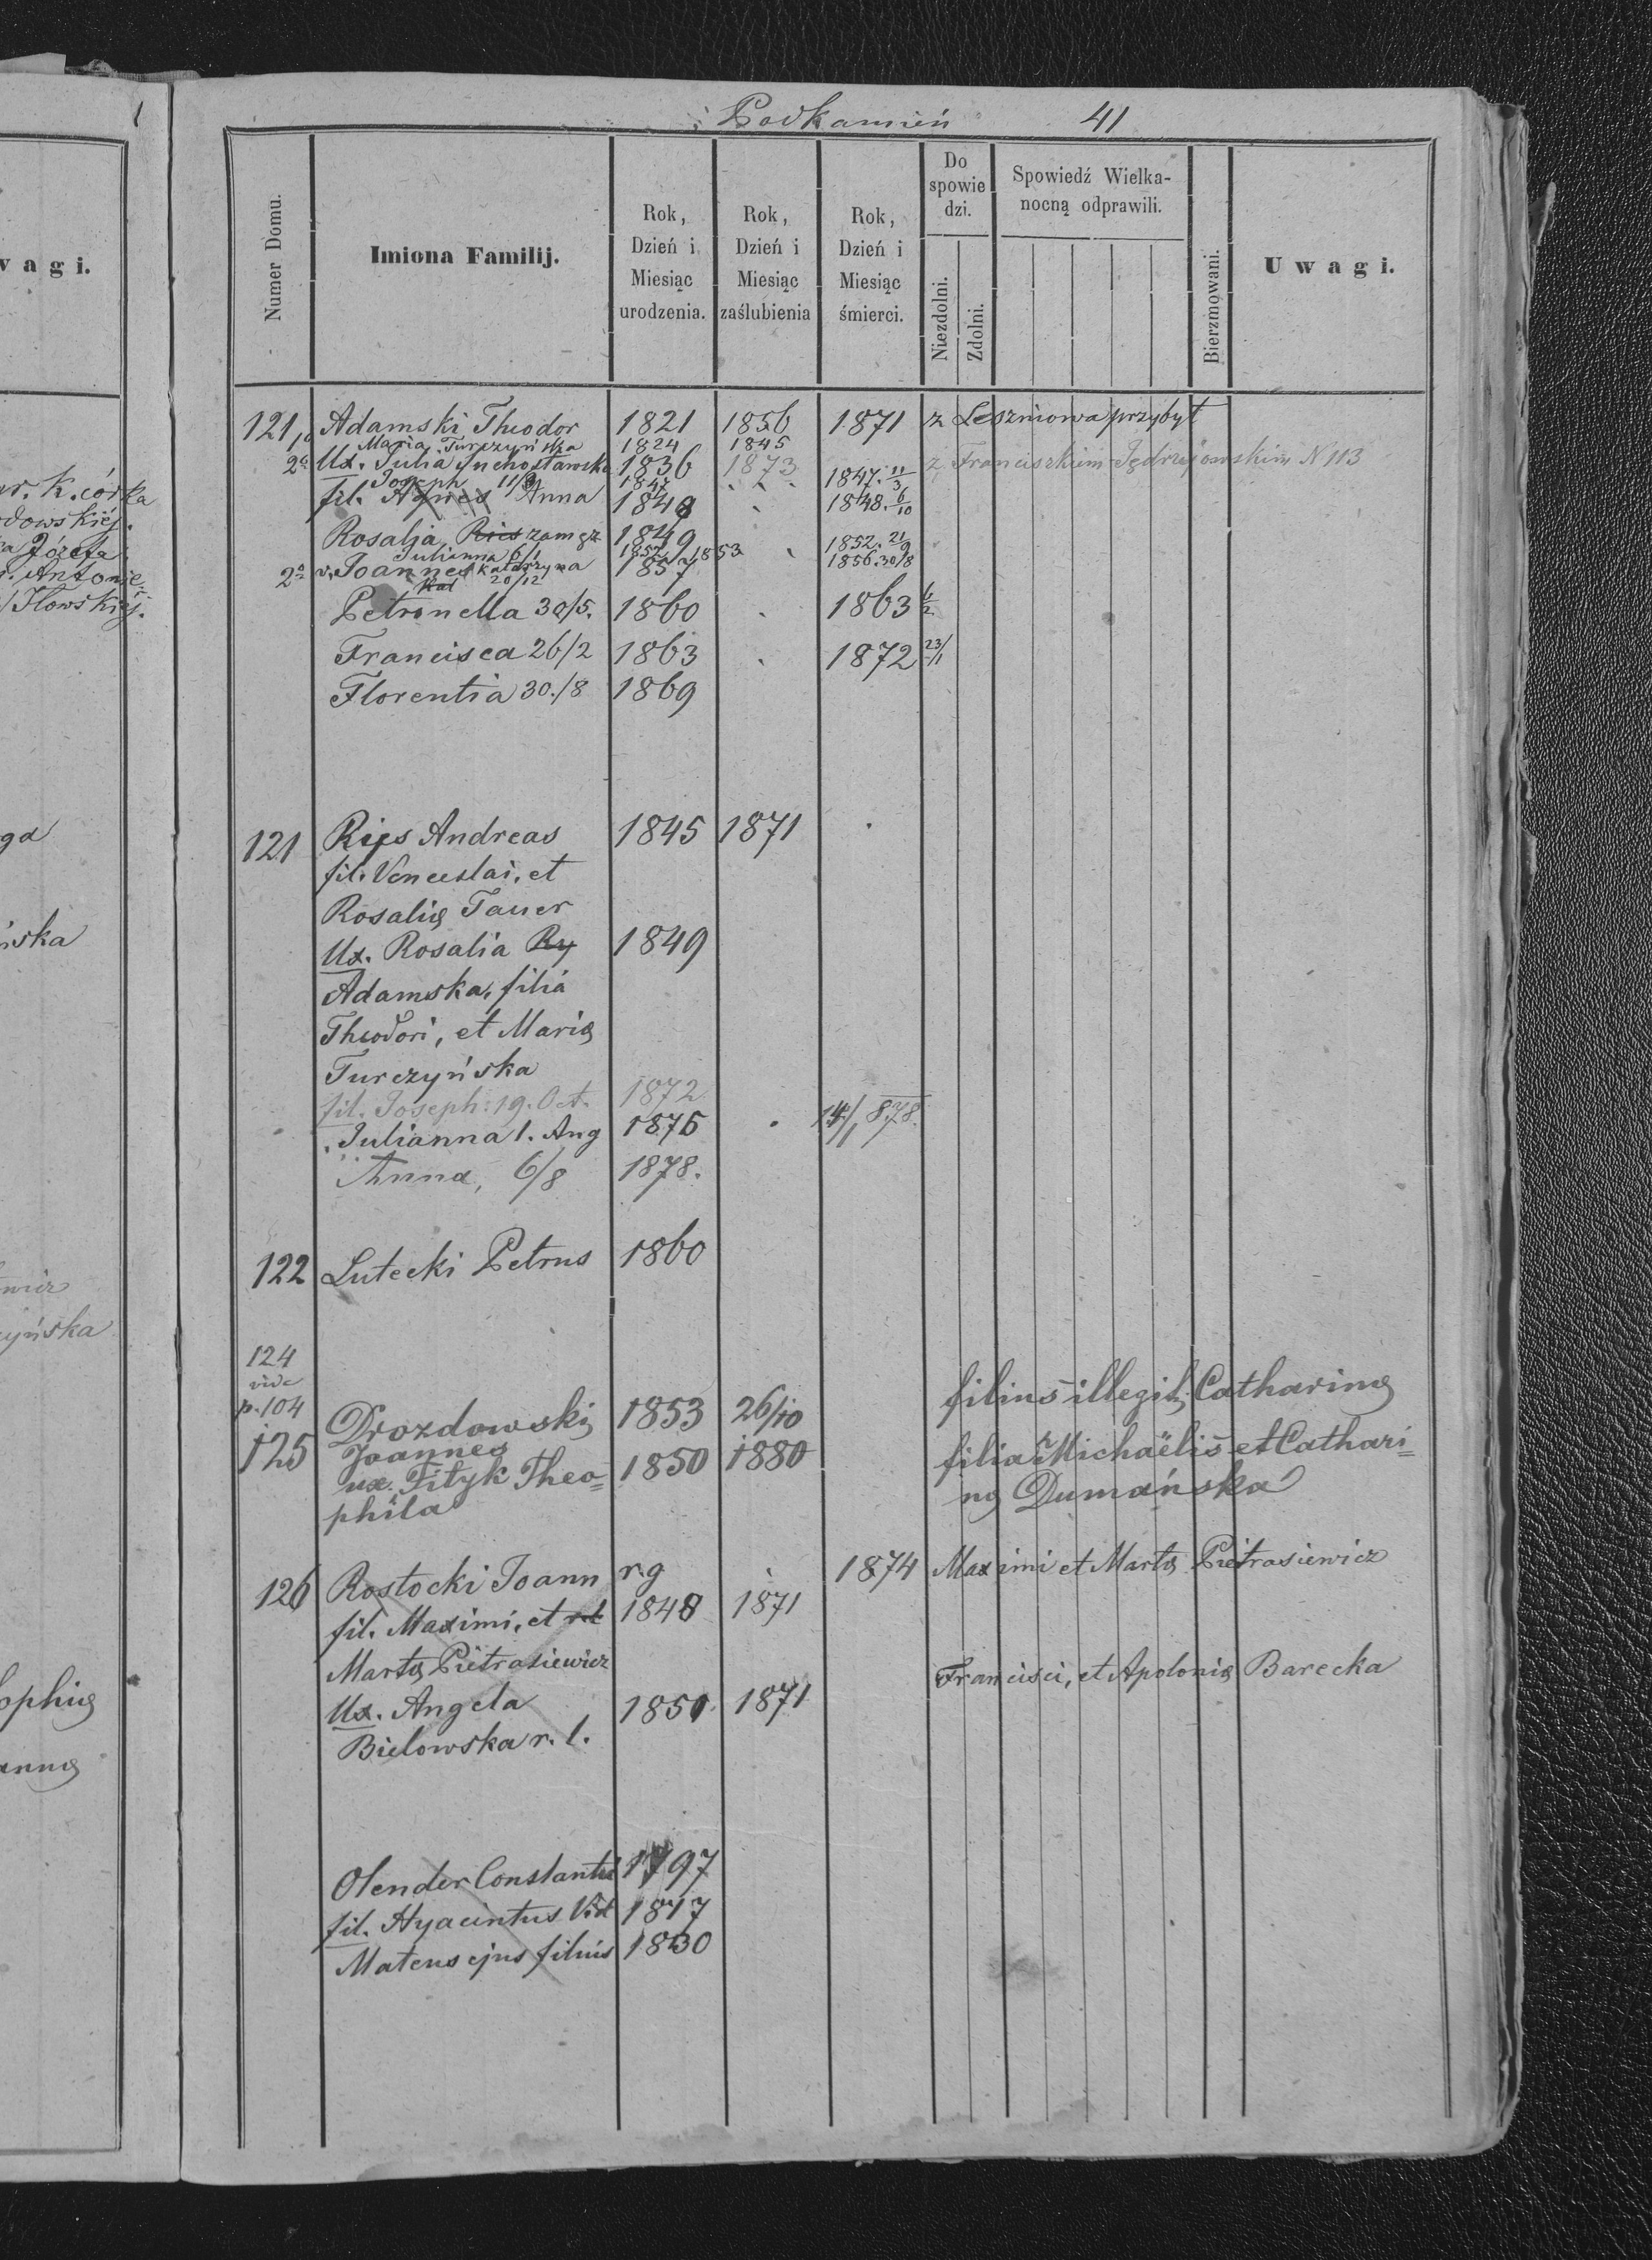 Podkamień 41
Numer Domu.
Imiona Familij.
Rok, Dzień i Miesiąc urodzenia.
Rok, Dzień i Miesiąc zaślubienia
Rok, Dzień i Miesiąc śmierci.
Do spowiedzi.
Niezdolni.
Zdolni.
Spowiedź Wielkanocną odprawili.
Bierzmowani.
Uwagi.
121 Adamski Theodor 1821 1856 1871 z Leszniowa przybył
Maria Turczyńska 1824 1845
Ux. Julia 1836 1873 z Franciszkiem Jędrzejowskim N 113
Joseph 11/3 1847 1847. 11/3
fil. Agnes Anna 1848 1848. 6/10
Rosalja Ries zamęz 1849 1852. 21/9
Julianna 6/1 1852 1853 1856. 30/8
Joannes Katarzyna 1857
20/12
Petronella 30/5. 1860 1863
Francisca 26/2 1863 1872 23/11
Florentia 30./8 1869
121 Ries Andreas 1845 1871
fil. Venceslai, et
Rosalię Tauer
Ux. Rosalia Ry 1849
Adamska, filia
Theodori, et Marię
Turczyńska
fil. Joseph: 19. Oct. 1872
Julianna 1. Aug 1875 14/1 878.
Anna, 6/8 1878.
122 Lutecki Petrus 1860
124
vide
p. 104
125 Drozdowski 1853 26/10 filius illegit. Catharinę
Joannes
ux. Fityk Theo= 1850 1880 filia Michaëlis et Cathari=
phila nę Dumańska
126 Rostocki Joann r.g 1874 Maximi et Martę Pietrasiewicz
fil. Maximi, et 1848 1871
Martę Pietrasiewicz
Francisci, et Apolonię Barecka
Ux. Angela 1850 1871
Bielowska r. l.
Olender Constantia 1797
fil. Hyacintus Vid 1817
Mateus ejus filius 1830